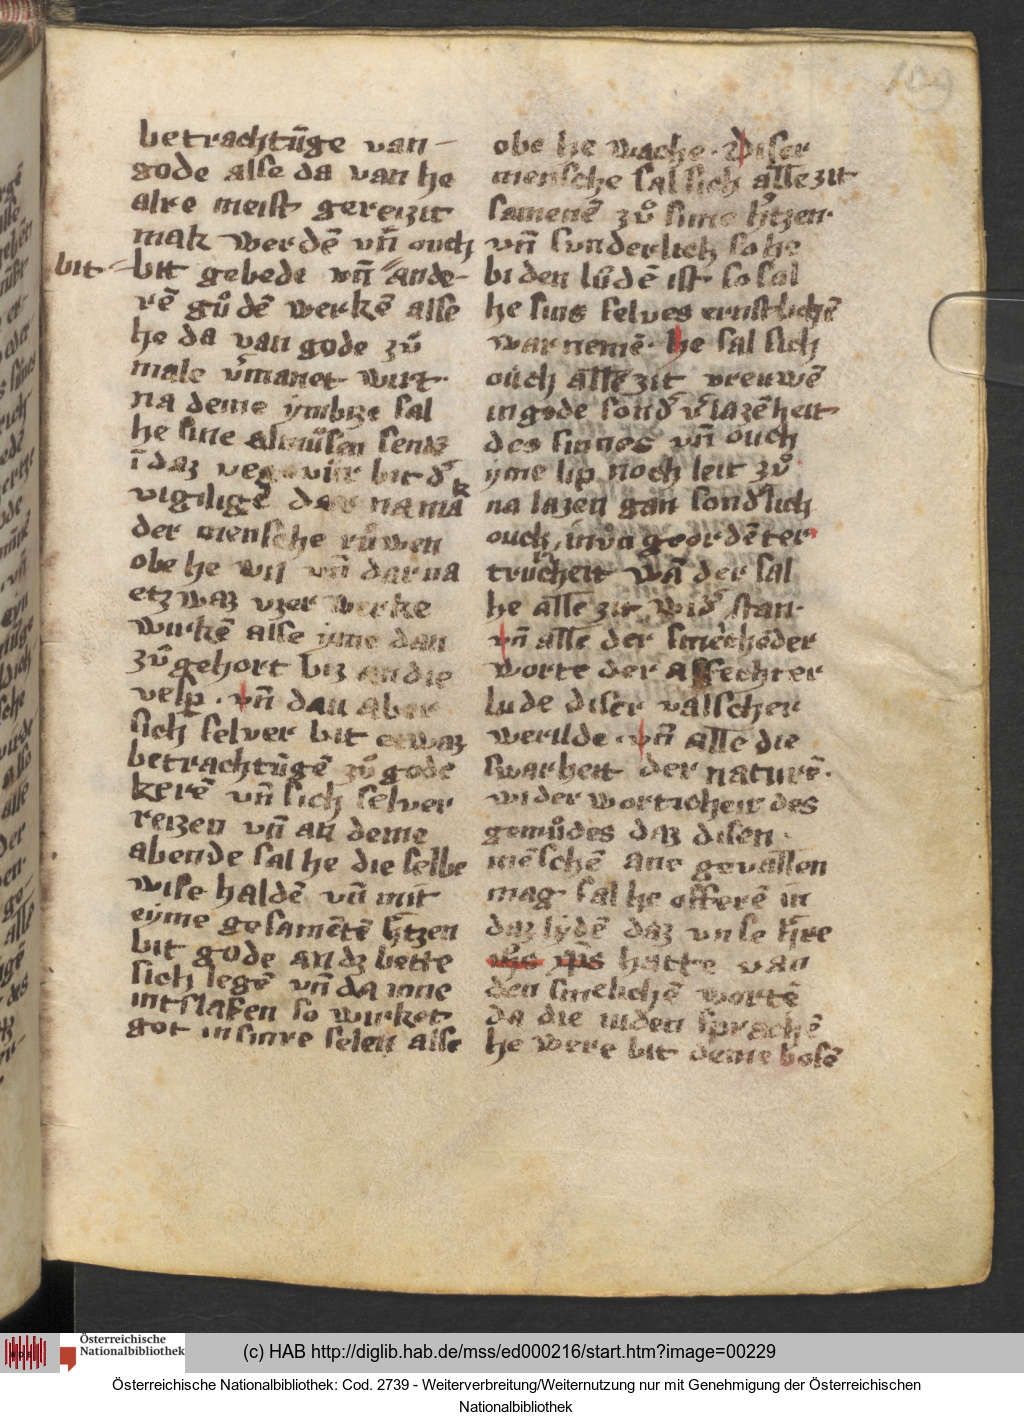 109
betrachtūge van-
gode alse da van he
alre meist gereizit
mak werdē vn̄ ouch
bit
bit gebede vn̄ ande-
rē gůdē werkē alse
he da van gode zů
male v̄manet wirt.
na deme ymbize sal
he sine almůsen sendē
ī daz vegevůr bit d᷑
vigiligē dar na mā
der mensche růwen
obe he wil vn̄ dar na
etzwaz vzer werke
wirkē alse yme dan
zů gehort biz an die
vesp. vn̄ dan aber
sich selver bit etwaz
betrachtūgē zů gode
kerē vn̄ sich selver
reizen vn̄ an deme
abende sal he die selbe
wise haldē vn̄ mit
eyme gesamētē h̄tzen
bit gode an dz bette
sich legē vn̄ da inne
intslafen so wirket
got in sinre selen alse
obe he wache. Diser
mensche sal sich alle zit
samenē zů sime h̄tzen.
vn̄ sunderlich so he
bi den lůdē ist so sal
he sins selves ernstlichē
war nemē. he sal sich
ouch alle zit vreuwē
in gode sond᷑ v̄lazēheit
des sinnes vn̄ ouch
yme lip noch leit zů
na lazen gan sond᷑lich
ouch in vngeordēter
trurcheit wā der sal
he alle zit wid᷑ stan.
vn̄ alle der smecħēder
worte der affechter
lude diser valscher
werilde. vn̄ alle die
swarheit der naturē.
wider worticheit des
gemůdes daz disen
mēschē ane gevallen
mag sal he offerē in
daz lydē daz vnse h̄re
ihs xp̄s hatte van
den smelichē wortē
da die iuden sprachē
he were bit deme bosē
Österreichische
Nationalbibliothek
(c) HAB http://diglib.hab.de/mss/ed000216/start.htm?image=00229
Österreichische Nationalbibliothek: Cod. 2739 - Weiterverbreitung/Weiternutzung nur mit Genehmigung der Österreichischen
Nationalbibliothek